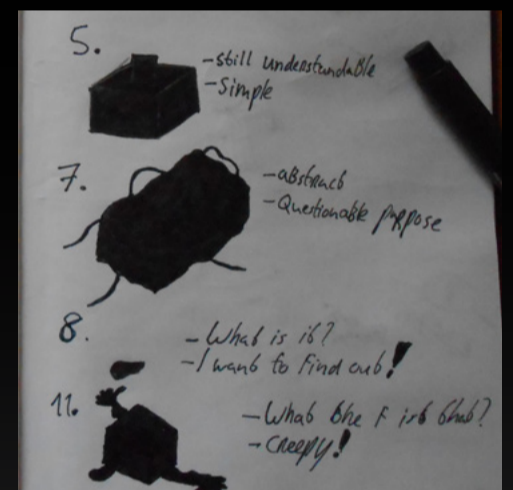 5.
-still understandable
-Simple
7.
-abstract
-Questionable purpose
8.
-What is it?
-I want to find out!
11.
-What the F is that?
-creepy!